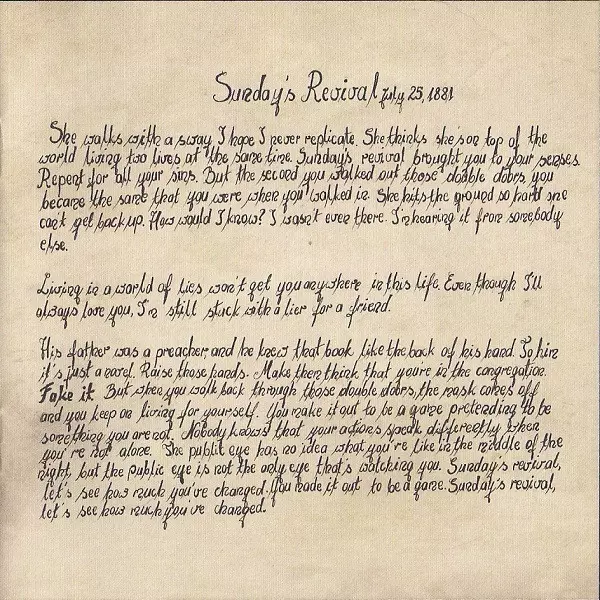 Sunday's Revival July 25, 1881
She walks with a sway I hope I never replicate. She thinks she's on top of the
world living too lives at the same time. Sunday's revival brought you to your senses.
Repent for all your sins. But the second you walked out those double doors, you
became the same that you were when you walked in. She hits the ground so hard she
can't get back up. How would I know? I wasn't even there. I'm hearing it from somebody
else.
Living in a world of lies won't get you anywhere in this life. Even though I'll
always love you, I'm still stuck with a lier for a friend.
His father was a preacher, and he knew that book like the back of his hand. To him
it's just a word. Raise those hands. Make them think that you're in the congregation.
Fake it. But when you walk back through those double doors, the mask comes off
and you keep on living for yourself. You make it out to be a game pretending to be
something you are not. Nobody knows that your actions speak differently when
you're not alone. The public eye has no idea what you're like in the middle of the
night, but the public eye is not the only eye that's watching you. Sunday's revival,
let's see how much you've changed. You made it out to be a game. Sunday's revival,
let's see how much you've changed.